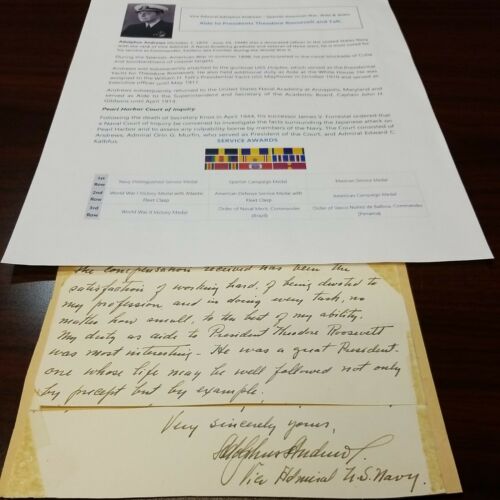 Vice Admiral Adolphus Andrews - Spanish American War, WWI & WWII
Aide to Presidents Theodore Roosevelt and Taft.
Adolphus Andrews (October 7, 1879 - June 19, 1948) was a decorated officer in the United States Navy
with the rank of Vice Admiral. A Naval Academy graduate and veteran of three wars, he is most noted for
his service as Commander, Eastern Sea Frontier during the World War II.
During the Spanish-American War in summer 1898, he participated in the naval blockade of Cuba
and bombardment of coastal targets.
Andrews was subsequently attached to the gunboat USS Dolphin, which served as the Presidential
Yacht for Theodore Roosevelt. He also held additional duty as Aide at the White House. He was
assigned to the William H. Taft's Presidential Yacht USS Mayflower in October 1910 and served as
Executive officer until May 1911.
Andrews subsequently returned to the United States Naval Academy at Annapolis, Maryland and
served as Aide to the Superintendent and Secretary of the Academic Board, Captain John H.
Gibbons until April 1914.
Pearl Harbor Court of Inquiry
Following the death of Secretary Knox in April 1944, his successor James V. Forrestal ordered that
a Naval Court of Inquiry be convened to investigate the facts surrounding the Japanese attack on
Pearl Harbor and to assess any culpability borne by members of the Navy. The Court consisted of
Andrews, Admiral Orin G. Murfin, who served as President of the Court, and Admiral Edward C.
Kalbfus.
SERVICE AWARDS
1st Row Navy Distinguished Service Medal Spanish Campaign Medal Mexican Service Medal
2nd Row World War I Victory Medal with Atlantic Fleet Clasp American Defense Service Medal with Fleet Clasp American Campaign Medal
3rd Row World War II Victory Medal Order of Naval Merit, Commander (Brazil) Order of Vasco Núñez de Balboa, Commander (Panama)
The compensation received has been the
satisfaction of working hard, of being devoted to
my profession and in doing every task, no
matter how small, to the best of my ability.
My duty as aide to President Theodore Roosevelt
was most interesting - He was a great President -
one whose life may be well followed not only
by precept but by example.
Very sincerely yours,
Adolphus Andrews.
Vice Admiral U.S. Navy.